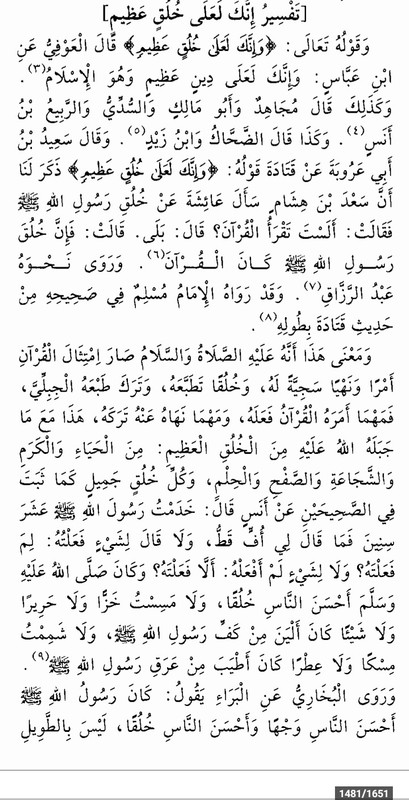 [تَفْسِيرُ إِنَّكَ لَعَلَى خُلُقٍ عَظِيمٍ]
وَقَوْلُهُ تَعَالَى: ﴿وَإِنَّكَ لَعَلَىٰ خُلُقٍ عَظِيمٍ﴾ قَالَ الْعَوْفِيُّ عَنِ
ابْنِ عَبَّاسٍ: وَإِنَّكَ لَعَلَى دِينٍ عَظِيمٍ وَهُوَ الْإِسْلَامُ(٣).
وَكَذَلِكَ قَالَ مُجَاهِدٌ وَأَبُو مَالِكٍ وَالسُّدِّيُّ وَالرَّبِيعُ بْنُ
أَنَسٍ(٤). وَكَذَا قَالَ الضَّحَّاكُ وَابْنُ زَيْدٍ(٥). وَقَالَ سَعِيدُ بْنُ
أَبِي عَرُوبَةَ عَنْ قَتَادَةَ قَوْلُهُ: ﴿وَإِنَّكَ لَعَلَىٰ خُلُقٍ عَظِيمٍ﴾ ذَكَرَ لَنَا
أَنَّ سَعْدَ بْنَ هِشَامٍ سَأَلَ عَائِشَةَ عَنْ خُلُقِ رَسُولِ اللهِ ﷺ
فَقَالَتْ: أَلَسْتَ تَقْرَأُ الْقُرْآنَ؟ قَالَ: بَلَى. قَالَتْ: فَإِنَّ خُلُقَ
رَسُولِ اللهِ ﷺ كَانَ الْقُرْآنَ(٦). وَرَوَى نَحْوَهُ
عَبْدُ الرَّزَّاقِ(٧). وَقَدْ رَوَاهُ الْإِمَامُ مُسْلِمٌ فِي صَحِيحِهِ مِنْ
حَدِيثِ قَتَادَةَ بِطُولِهِ(٨).
وَمَعْنَى هَذَا أَنَّهُ عَلَيْهِ الصَّلَاةُ وَالسَّلَامُ صَارَ امْتِثَالُ الْقُرْآنِ
أَمْرًا وَنَهْيًا سَجِيَّةً لَهُ، وَخُلُقًا تَطَبَّعَهُ، وَتَرَكَ طَبْعَهُ الْجِبِلِّيَّ،
فَمَهْمَا أَمَرَهُ الْقُرْآنُ فَعَلَهُ، وَمَهْمَا نَهَاهُ عَنْهُ تَرَكَهُ، هَذَا مَعَ مَا
جَبَلَهُ اللهُ عَلَيْهِ مِنَ الْخُلُقِ الْعَظِيمِ: مِنَ الْحَيَاءِ وَالْكَرَمِ
وَالشَّجَاعَةِ وَالصَّفْحِ وَالْحِلْمِ، وَكُلِّ خُلُقٍ جَمِيلٍ كَمَا ثَبَتَ
فِي الصَّحِيحَيْنِ عَنْ أَنَسٍ قَالَ: خَدَمْتُ رَسُولَ اللهِ ﷺ عَشَرَ
سِنِينَ فَمَا قَالَ لِي أُفٍّ قَطُّ، وَلَا قَالَ لِشَيْءٍ فَعَلْتُهُ: لِمَ
فَعَلْتَهُ؟ وَلَا لِشَيْءٍ لَمْ أَفْعَلْهُ: أَلَّا فَعَلْتَهُ؟ وَكَانَ صَلَّى اللهُ عَلَيْهِ
وَسَلَّمَ أَحْسَنَ النَّاسِ خُلُقًا، وَلَا مَسِسْتُ خَزًّا وَلَا حَرِيرًا
وَلَا شَيْئًا كَانَ أَلْيَنَ مِنْ كَفِّ رَسُولِ اللهِ ﷺ، وَلَا شَمِمْتُ
مِسْكًا وَلَا عِطْرًا كَانَ أَطْيَبَ مِنْ عَرَقِ رَسُولِ اللهِ ﷺ(٩).
وَرَوَى الْبُخَارِيُّ عَنِ الْبَرَاءِ يَقُولُ: كَانَ رَسُولُ اللهِ ﷺ
أَحْسَنَ النَّاسِ وَجْهًا وَأَحْسَنَ النَّاسِ خُلُقًا، لَيْسَ بِالطَّوِيلِ
1481/1651